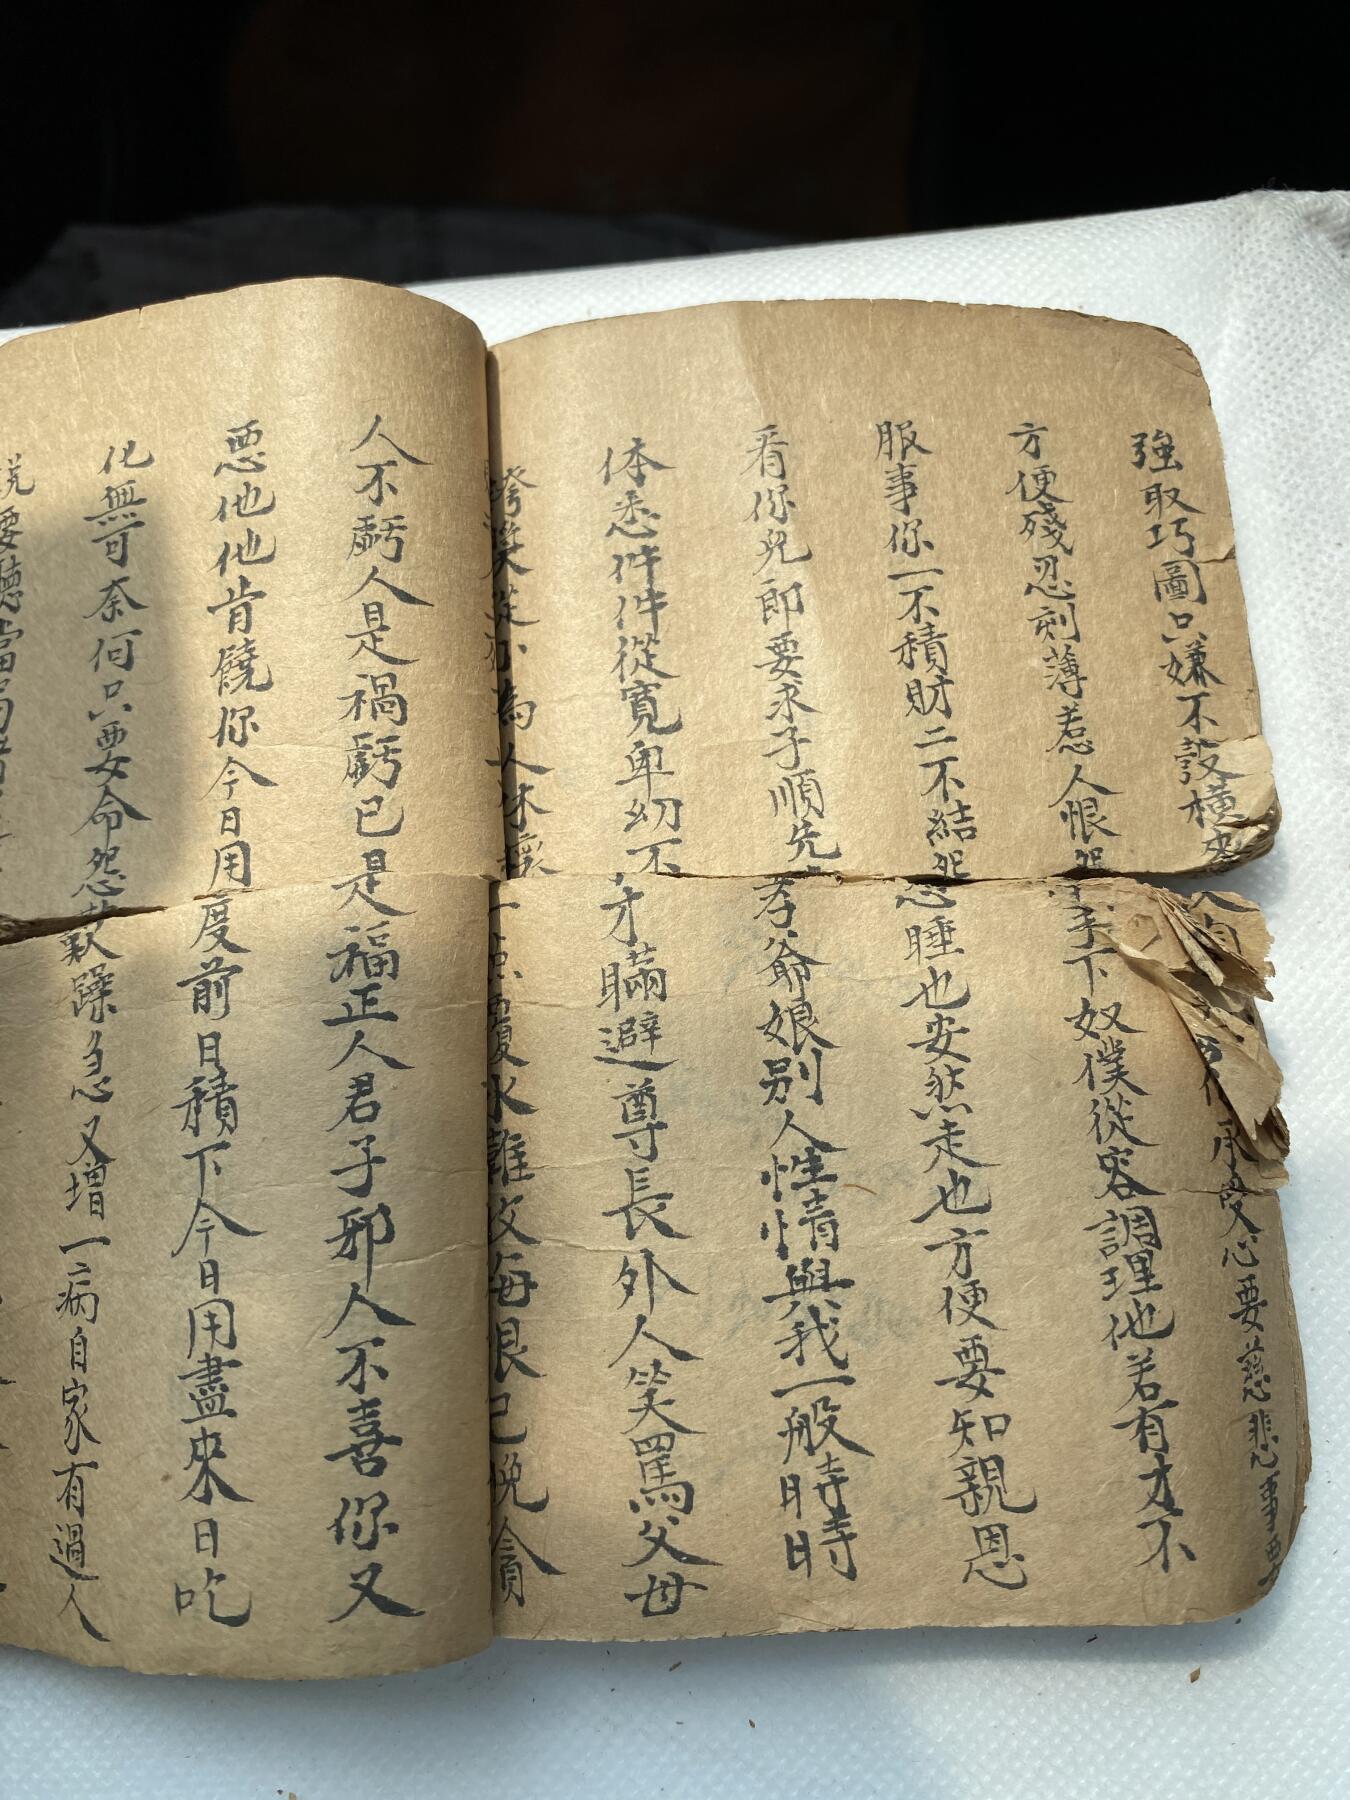 強取巧圖只嫌不彀橫來
承受心要慈悲事要
方便殘忍刻薄惹人恨怨手下奴僕從容調理他若有才不
服事你一不積財二不結怨睡也安然走也方便要知親恩
看你兒郎要求子順先孝爺娘別人性情與我一般時時
体悉件件從寬卑幼不才瞞避尊長外人笑罵父母
從小為人休壞一覆水難收每恨已晚貪
人不虧人是禍虧己是福正人君子邪人不喜你又
惡他他肯饒你今日用度前日積下今日用盡來日吃
化無可奈何只要命怨歎躁急又增一病自家有過人
説要聽當局